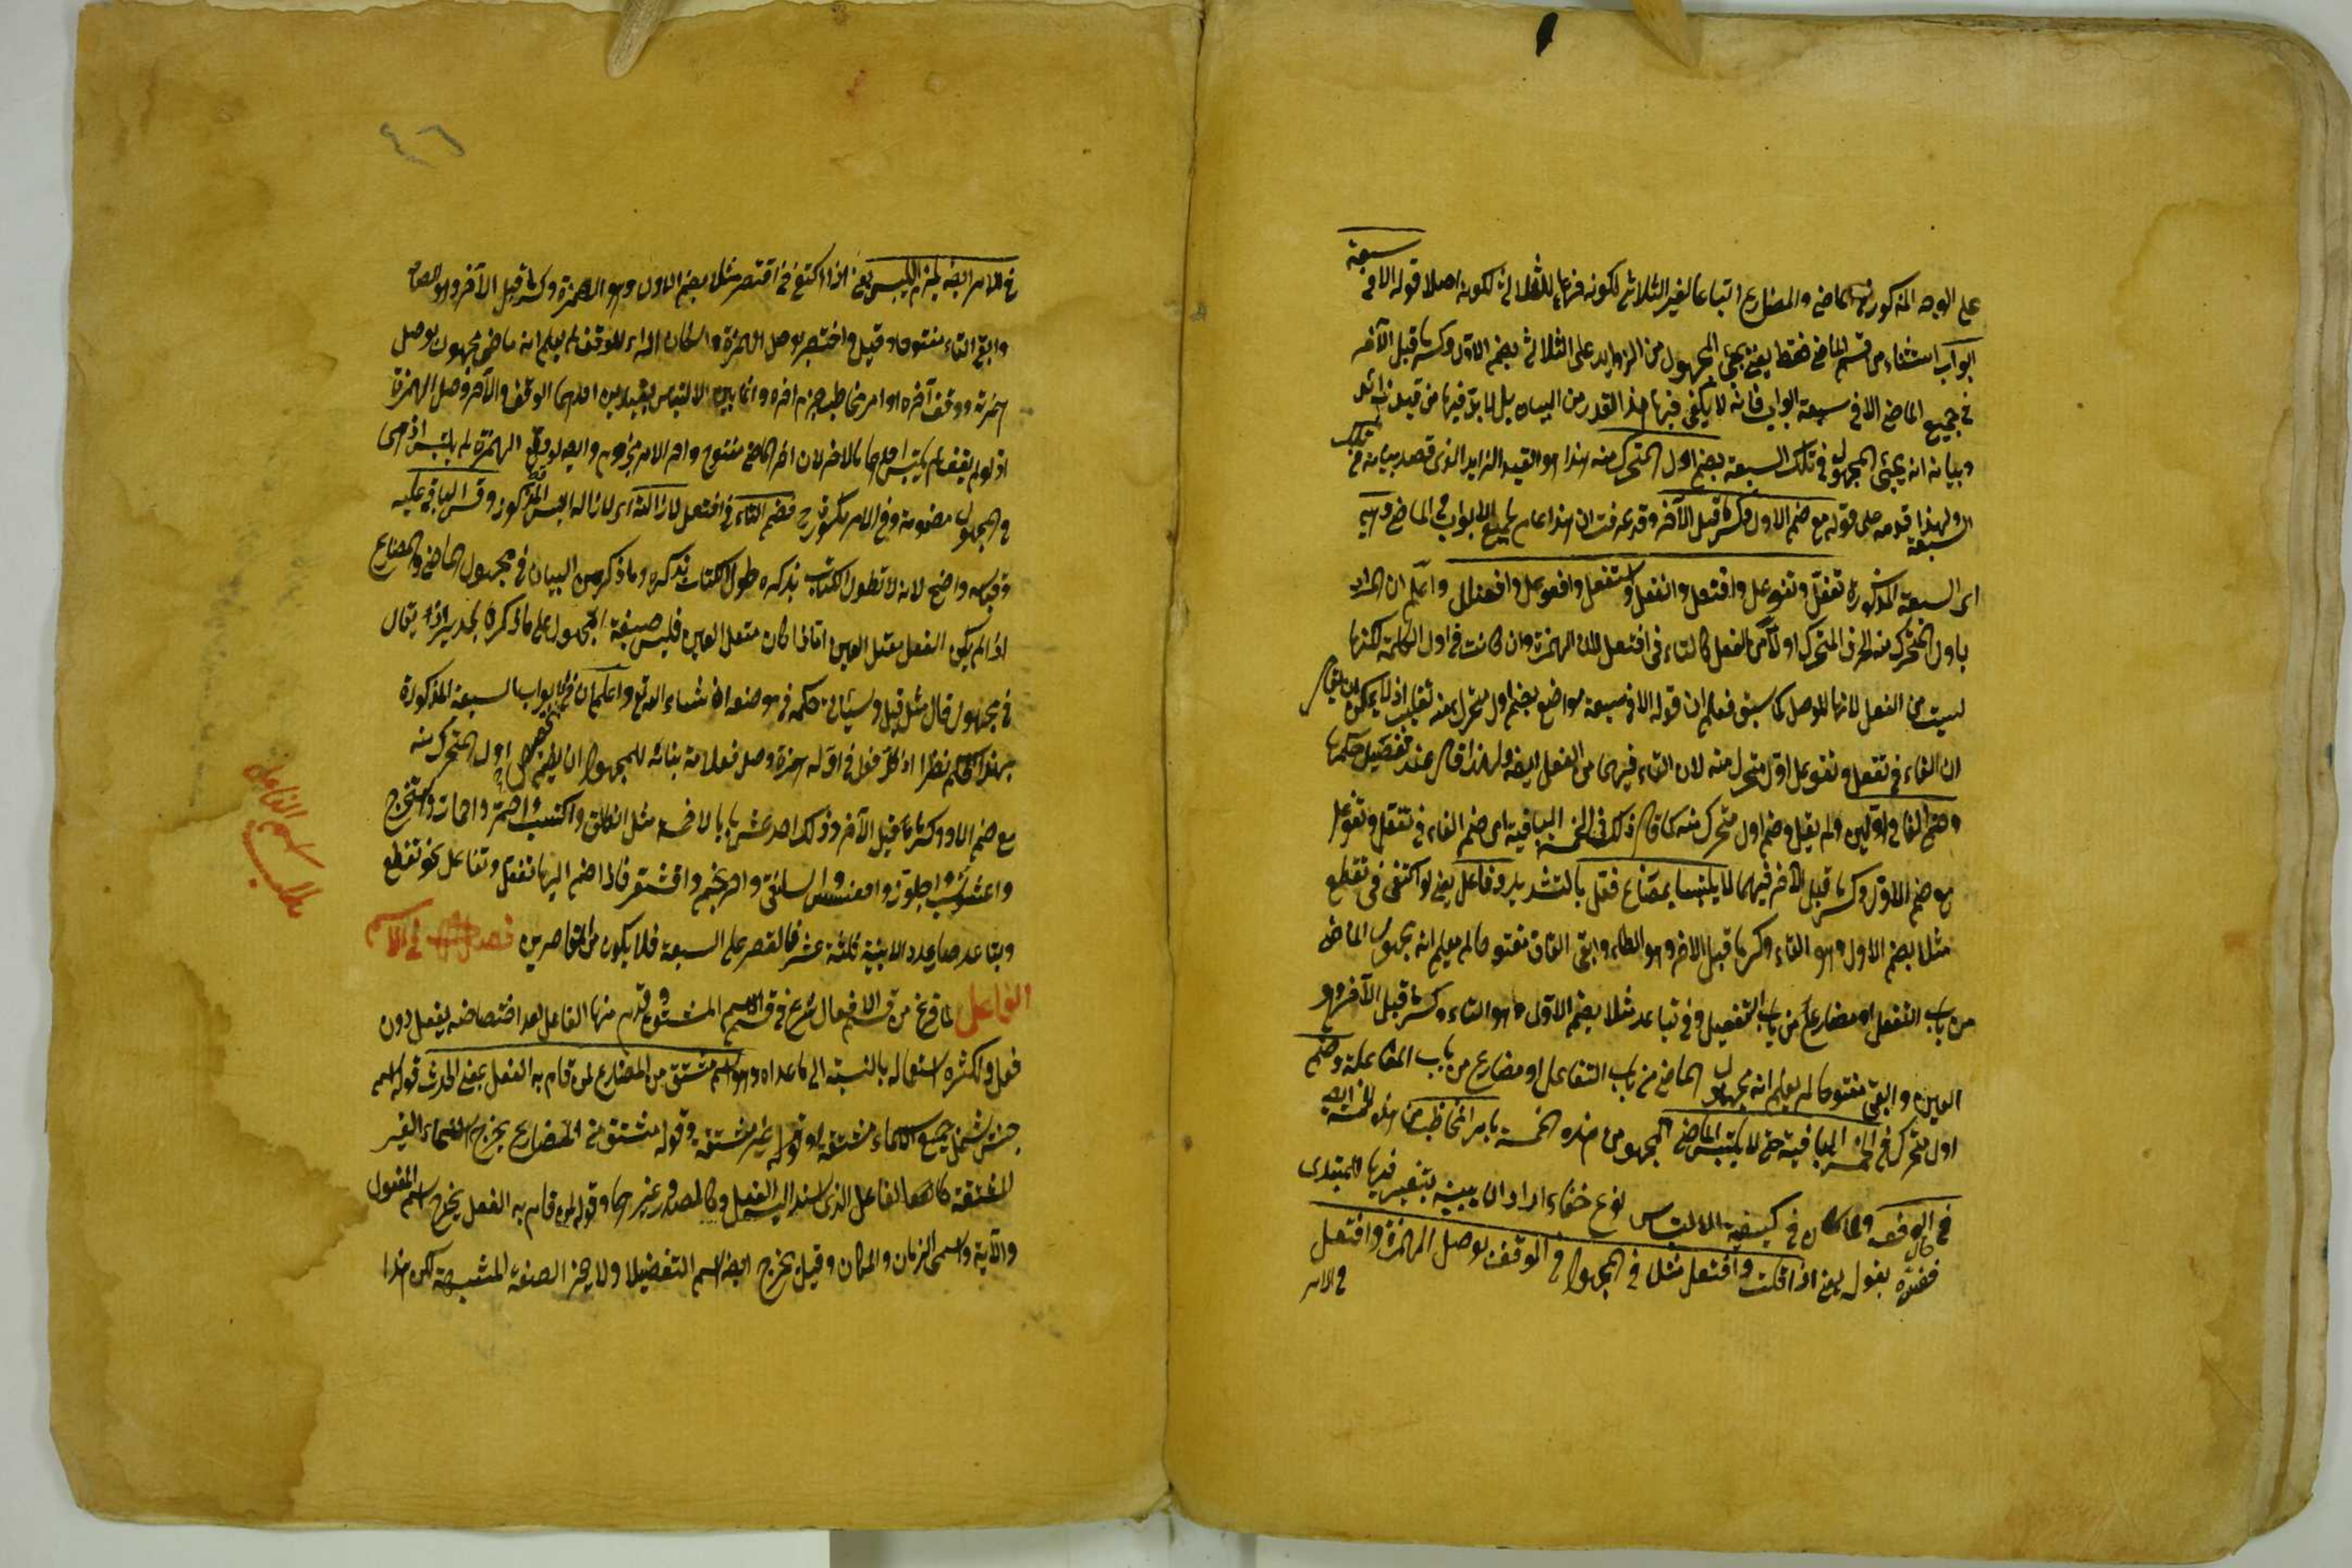 سبعة
على الوجه المذكور في الماضي والمضارع اتباعا لغير الثلاثي لكونه فرعا للثلاثي لكونه اصلا قوله الا في
ابواب استثناء من قسم الماضي فقط يعني يجئ المجهول من الزوايد على الثلاثي بضم الاول وكسر ما قبل الآخر
في جميع الماضي الا في سبعة ابواب فانه لا يكفي فيها هذا القدر من البيان بل لا بد فيها من قيد زائد
وبيانه انه يجئ المجهول في تلك السبعة بضم اول المتحرك منه هذا هو القيد الزايد الذي قصد بيانه في تلك
السبعة ولهذا قدمه على قوله مع ضم الاول وكسر ما قبل الآخر وقد عرفت ان هذا عام لجميع الابواب في الماضي وهي
اي السبعة المذكورة تفعّل وتفوعل وافتعل وانفعل واستفعل وافعوعل وافعنلل واعلم ان المراد
باول المتحرك منه الحرف المتحرك اولا من الفعل كالتاء في افتعل لان الهمزة وان كانت في اول الكلمة لكنها
ليست من الفعل لانها للوصل كما سبق فعلم ان قوله الا في سبعة مواضع بضم اول متحرك منه تغليب اذ لا يمكن ان يقال
ان الفاء في تفعل وتفوعل اول متحرك منه لان التاء فيهما من الفعل ايضا ولهذا قال عند تفصيل حكمها
وضم الفاء في الاولين ولم يقل وضم اول متحرك منه كما قال ذلك في الخمسة الباقية اي ضم الفاء في تفعل وتفوعل
مع ضم الاول وكسر ما قبل الآخر فيهما لئلا يلتبسا بمضارع فعّل بالتشديد وفاعل يعني لو اكتفى في تقطع
مثلا بضم الاول وهو التاء وكسر ما قبل الآخر وهو الطاء وابقى القاف مفتوحا لم يعلم انه مجهول الماضي
من باب التفعل او مضارع من باب التفعيل وفي تباعد مثلا بضم الاول وهو التاء وكسر ما قبل الآخر وهو
العين وابقى مفتوحا لم يعلم انه مجهول الماضي من باب التفاعل او مضارع من باب المفاعلة وضم
اول متحرك في الخمسة الباقية حتى لا يلتبس الماضي المجهول من هذه الخمسة بامر المخاطب من هذه الخمسة ايضا
في الوقف ولما كان في كيفية الالتباس نوع خفاء اراد ان يبينه بتفسير فيها للمبتدى
ففسره بقوله يعني اذا قلت وافتعل مثلا في المجهول في الوقف بوصل الهمزة وافتعل
في الامر
٤٦
في الامر ايضا يلزم اللبس يعني اذا اكتفى في اقتصر مثلا بضم الاول وهو الهمزة وكسر ما قبل الآخر وهو الصاد
وابقى التاء مفتوحا وقيل واختصر بوصل الهمزة واسكان الراء للوقف لم يعلم انه ماضي مجهول بوصل
همزته ووقف آخره او امر مخاطب بجزم آخره وانما يبين الالتباس بقيدين احدهما الوقف والآخر وصل الهمزة
اذ لو لم يقف لم يلتبس احدهما بالآخر لان اخر الماضي مفتوح واخر الامر مجزوم وايضا لو لم يوصل الهمزة لم يلتبس اذ هي
في المجهول مضمومة وفي الامر مكسورة فضم التاء في افتعل لازالته اي لازالة اللبس المذكور وقس الباقي عليه
وقياسه واضح لانه لا تطول الكتاب بذكره وما ذكر من البيان في مجهول الماضي والمضارع
اذا لم يكن الفعل معتل العين اما اذا كان معتل العين فليس صيغة المجهول على ما ذكره بل يقال
في مجهول قال مثلا قيل وسيأتي حكمه في موضعه ان شاء الله تع واعلم ان في الابواب السبعة المذكورة
بهذا الحكم نظرا اذ كل فعل في اوله همزة وصل فعلامة بنائه للمجهول ان يضم اول المتحرك منه
مع ضم الاول وكسر ما قبل الآخر وذلك احد عشر بابا لا خمسة مثل انطلق واكتسب واحمر واحمار واستخرج
واعشوشب واجلوذ واقعنسس واسلنقى واحرنجم واقشعر فاذا ضم اليها تفعل وتفاعل نحو تقطع
وتباعد صار عدد الابنية ثلثة عشر فالقصر على السبعة فلا يكون من القاصرين فصل في اسم
الفاعل لما فرغ من قسم الافعال شرع في قسم الاسم المشتق وقدم منها الفاعل بعد اختصاصه بفعل دون
فعل ولكثرة استعماله بالنسبة الى ما عداه وهو اسم مشتق من المضارع لمن قام به الفعل بمعنى الحدوث قوله اسم
جنس شمل جميع الاسماء مشتقة او غير مشتقة وقوله مشتق من المضارع يخرج الاسماء الغير
المشتقة كاسماء الفاعل الذي اسند اليه الفعل وكالمصدر وغيرهما وقوله لمن قام به الفعل يخرج اسم المفعول
والآلة واسمي الزمان والمكان وقيل يخرج ايضا اسم التفضيل ولا يخرج الصفة المشبهة لكن هذا
مطلب اسم الفاعل